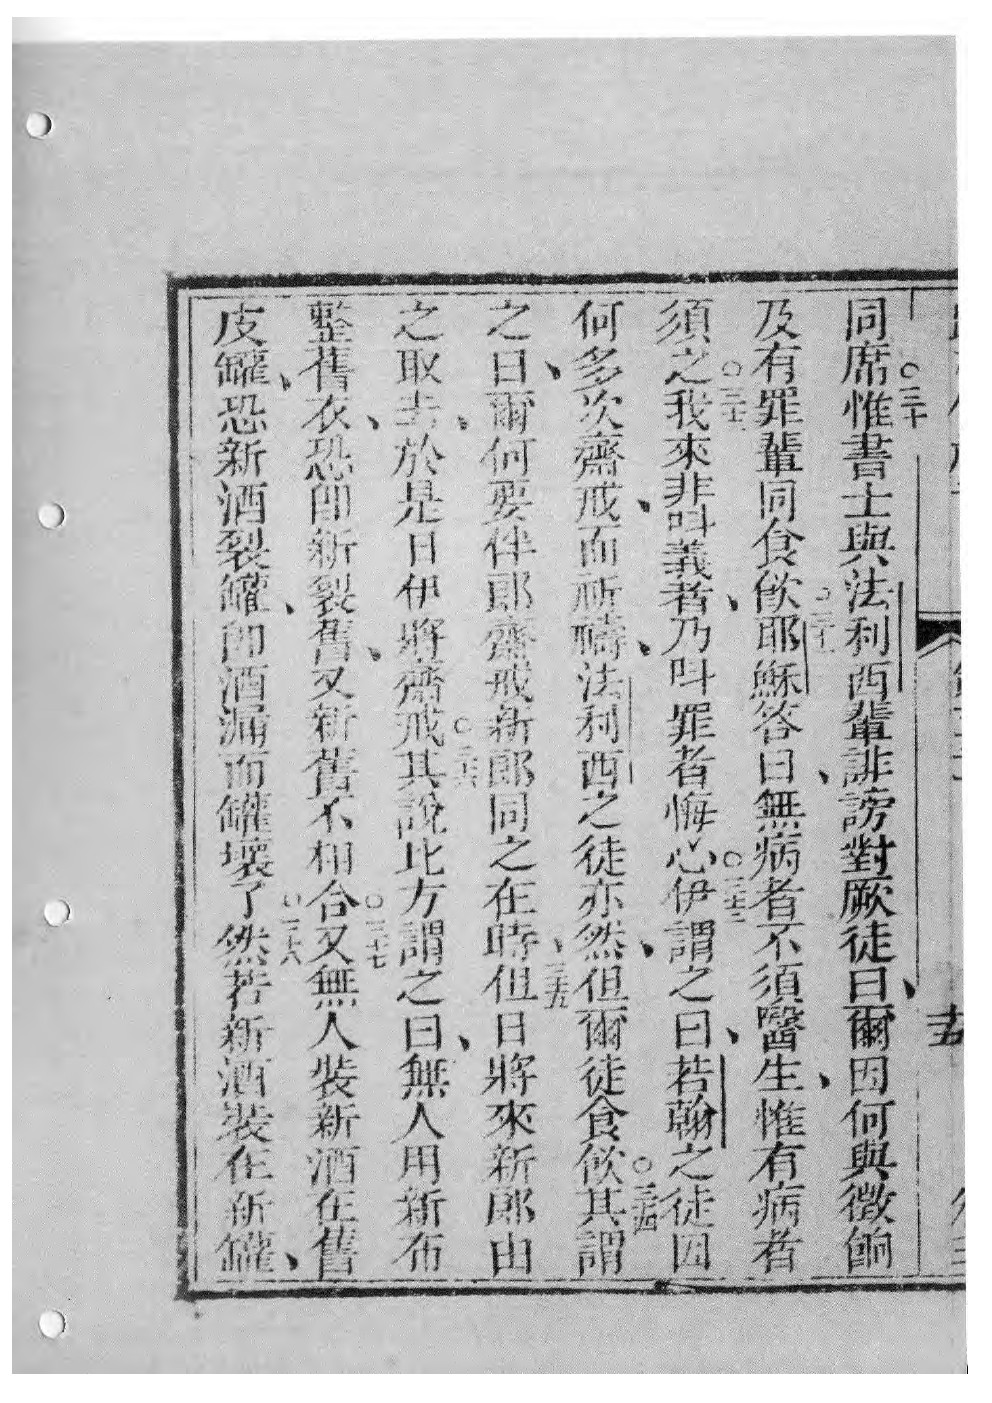 同席惟書士與法利西輩誹謗對厥徒曰爾因何與徵餉
及有罪輩同食飲耶穌答曰無病者不須醫生惟有病者
須之我來非叫義者乃叫罪者悔心伊謂之曰若翰之徒因
何多次齋戒而祈禱法利西之徒亦然但爾徒食飲其謂
之曰爾何要伴郎齋戒新郎同之在時但日將來新郎由
之取去於是日伊將齋戒其說比方謂之曰無人用新布
整舊衣恐卽新裂舊又新舊不相合又無人裝新酒在舊
皮罐恐新酒裂罐卽酒漏而罐壞了然若新酒裝在新罐